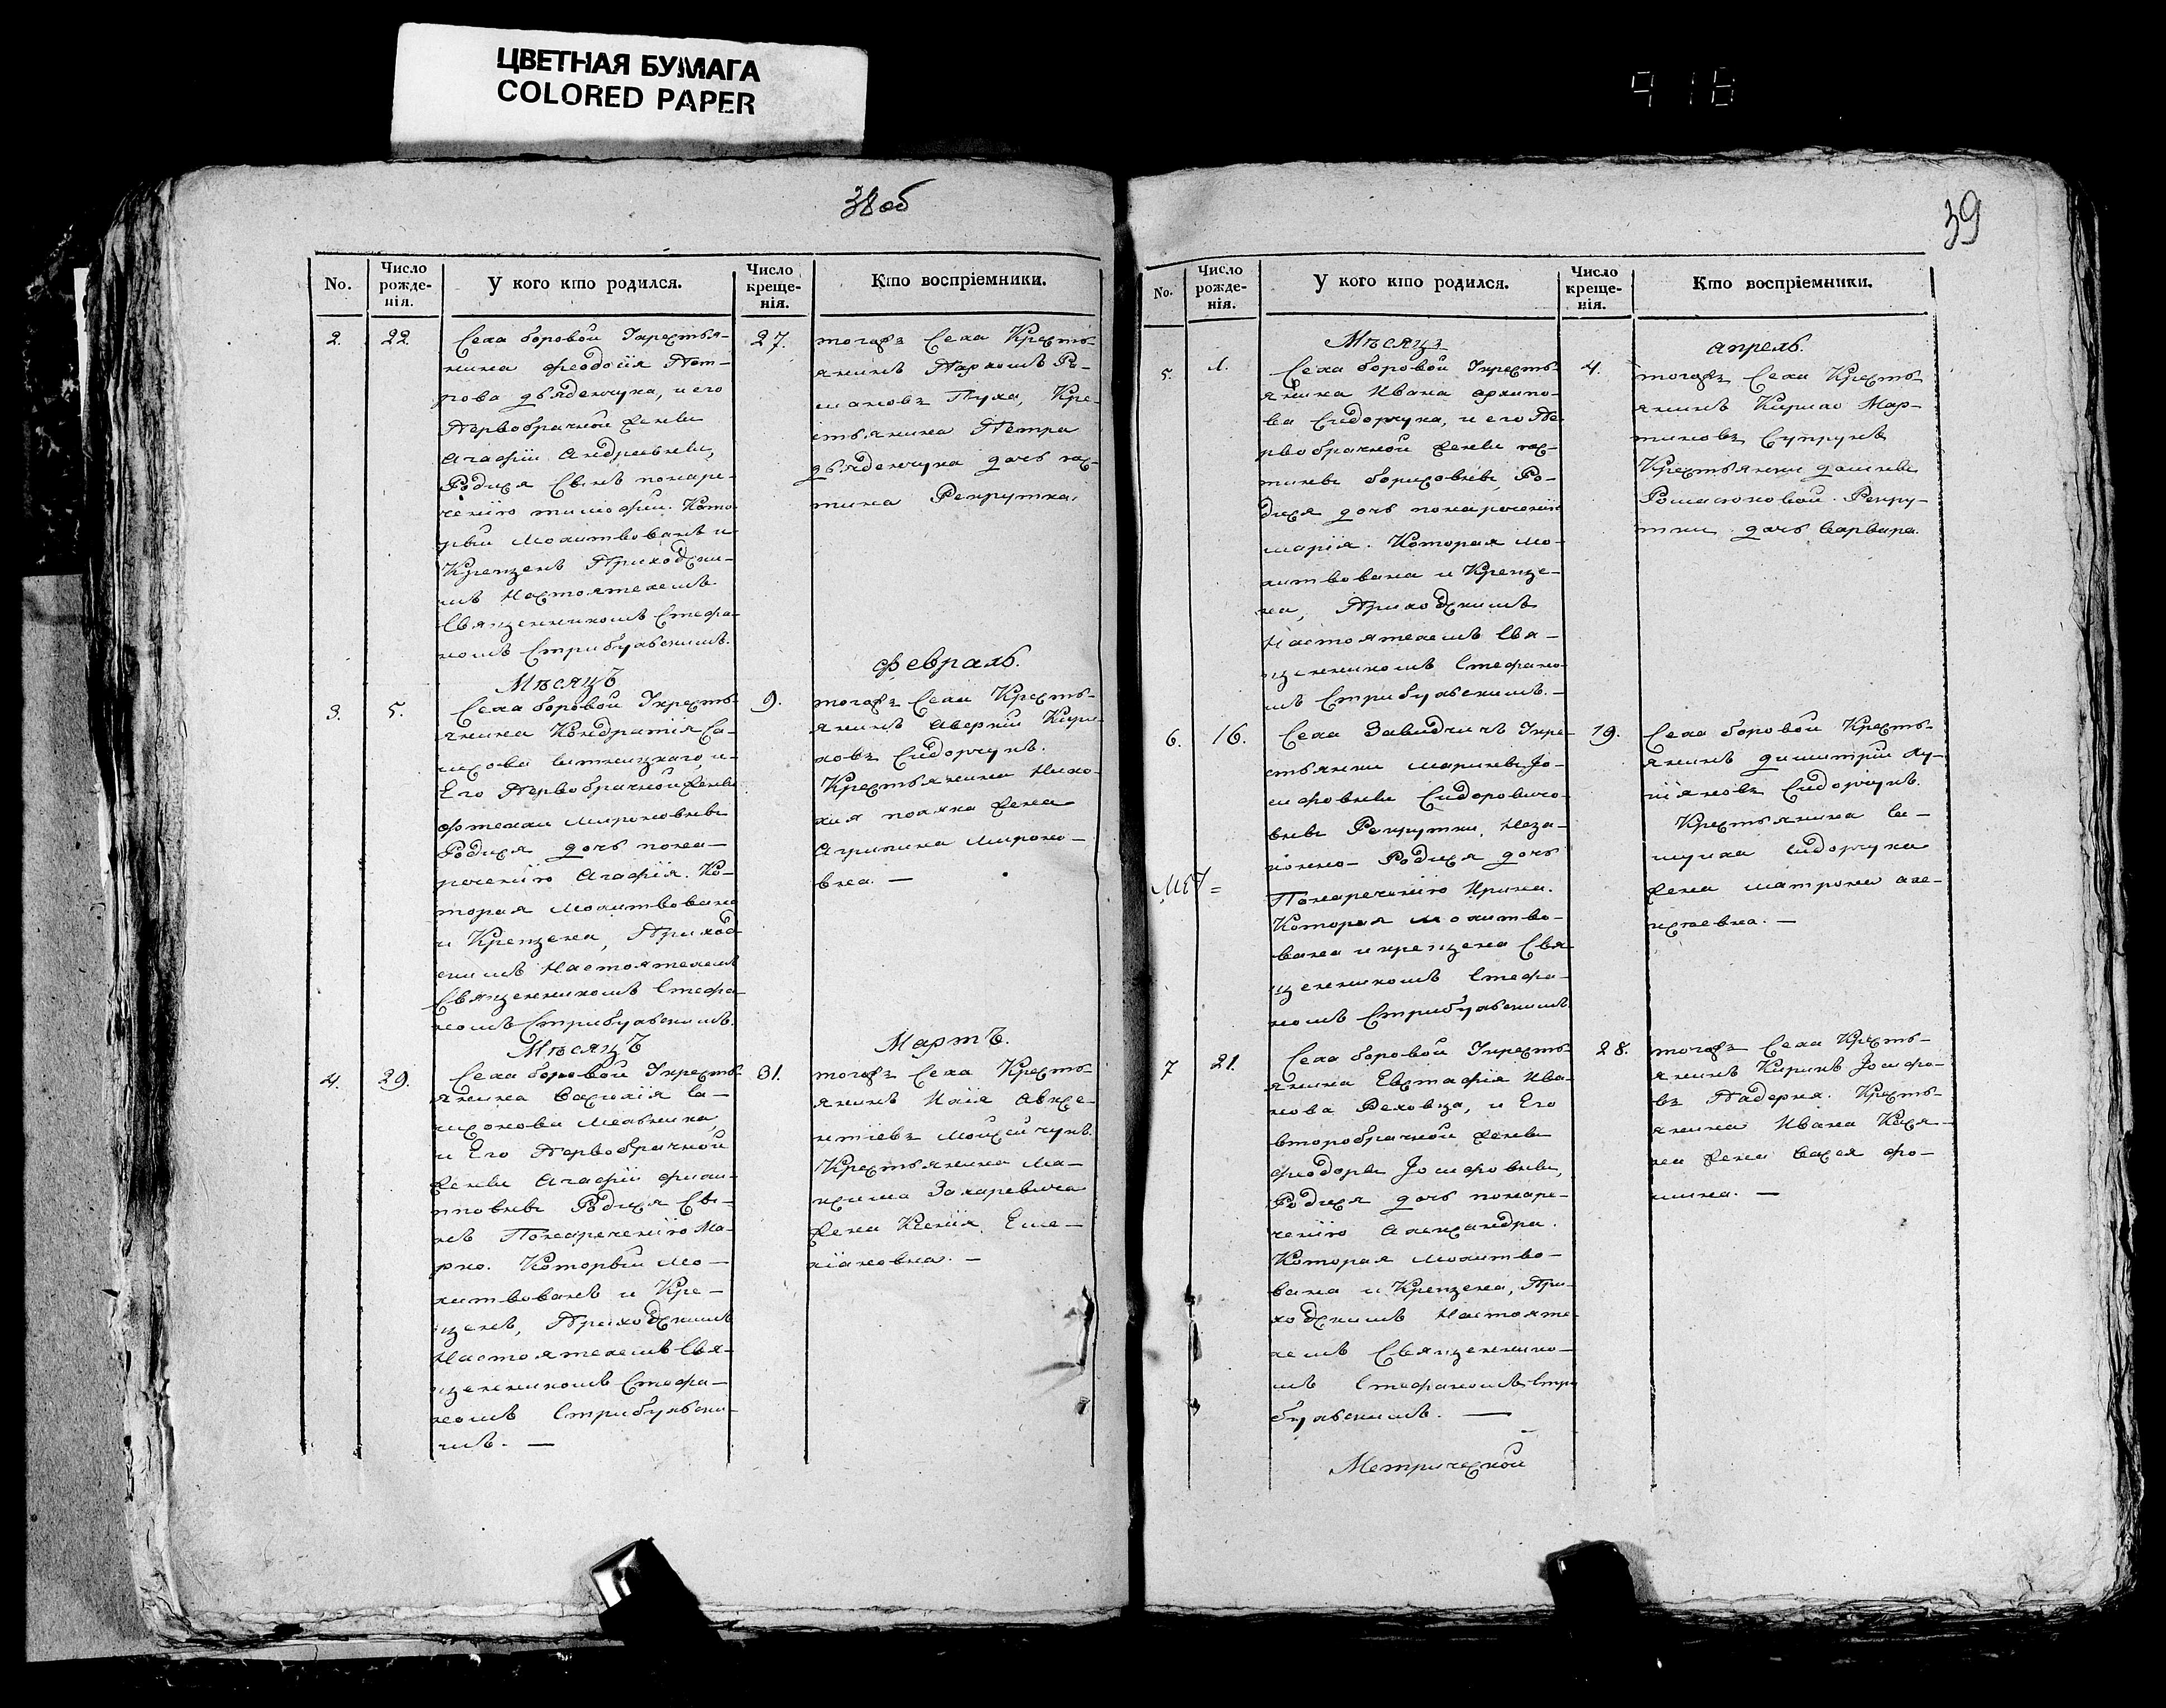 ЦВЕТНАЯ БУМАГА
COLORED PAPER
918
38 об
No.
Число рожденія.
У кого кто родился.
Число крещенія.
Кто воспріемники.
2.
22
Села боровой Укрестья-
нина Феодосія Пет-
рова
и его
Первобрачной жены
Агафіи Андреевны,
Родился Сынъ понаре-
ченію Тимофій. Кото-
рый молитвованъ и
Крещенъ Приходски-
мъ Настоятелемъ
Священникомъ Стефа-
номъ Стрибульскимъ.
27.
тогожъ Села Кресть-
янинъ Пархомъ Ро-
мановъ Пуха, Кре-
стьянина Петра
дочь
Рекрутка,
Мѣсяцъ
Февраль.
3.
5.
Села боровой Укресть-
янина Кондратія Са-
и
Его Первобрачной жены
Мироновны
Родился дочь пона-
реченію Агафія. Ко-
торая Молитвована
и Крещена, Приход-
скимъ Настоятелемъ
Священникомъ Стефа-
номъ Стрибульскимъ.
9.
тогожъ Села Кресть-
янинъ Аверкій Кири-
ловъ Сидорчукъ.
Крестьянина Нико-
лая поляка жена
Агрипина Мироно-
вна. —
Мѣсяцъ
Мартъ.
4.
29.
Села боровой Укресть-
янина Василія Са-
мсонова Мельника,
и Его Первобрачной
жены Агафіи Фили-
пповны Родился Сы-
нъ Понареченію Ма-
рко. Который Мо-
литвованъ и Кре-
щенъ, Приходскимъ
Настоятелемъ Свя-
щенникомъ Стефа-
номъ Стрибульски-
мъ. —
31.
тогожъ Села Кресть-
янинъ Илія Авксе-
нтіевъ Мойсійчукъ.
Крестьянина Ма-
ксима Захаревича
жена Ксенія Еме-
ліановна. —
39
No.
Число рожденія.
У кого кто родился.
Число крещенія.
Кто воспріемники.
Мѣсяцъ
апрель.
5.
1.
Села боровой Укресть-
янина Ивана Архипо-
ва Сидорчука, и его Пе-
рвобрачной жены Юс-
тины Борисовны, Ро-
дился дочь понареченію
Марія. Которая мо-
литвована и Креще-
на, Приходскимъ
Настоятелемъ Свя-
щенникомъ Стефано-
мъ Стрибульскимъ. —
4.
тогожъ Села Кресть-
янинъ Кирило Мар-
тиновъ Супрунъ
Крестьянки
Ромасюковой Рекру-
тки дочь Варвара.
6.
16.
Села Завидчичъ Укре-
стьянки Марины Іо-
сифовны Сидоровичо-
вны Рекрутки, Неза-
конно Родился дочь
Понареченію Ирина.
Которая молитво-
вана и крещена Свя-
щенникомъ Стефа-
номъ Стрибульскимъ
19.
Села боровой Кресть-
янинъ Димитрій Лу-
кіяновъ Сидорчукъ.
Крестьянина Са-
муила Сидорчука
жена Матрона Але-
ксіевна. —
7
21.
Села боровой Укресть-
янина Евстафія Ива-
нова Реховца, и Его
второбрачной жены
Феодоры Іосифовны,
Родился дочь понаре-
ченію Александра.
Которая Молитво-
вана и Крещена, При-
ходскимъ Настояте-
лемъ Священнико-
мъ Стефаномъ Стри-
бульскимъ. —
28.
тогожъ Села Кресть-
янинъ Киринъ Іосифо-
въ Падерня. Кресть-
янина Ивана
жена Васся Фо-
мина. —
Метрической